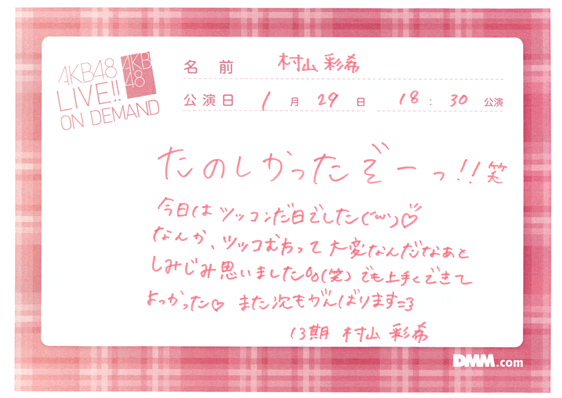 AKB48
LIVE!!
ON DEMAND
AKB
48
名前 村山彩希
公演日 1月29日 18:30公演
たのしかったぞーっ!!笑
今日はツッコんだ日でした('ω')♡
なんか、ツッコむちって大変なんだなあと
しみじみ思いました。(笑)でも上手くできて
よっかった♡ また次もがんばります=3
13期 村山彩希
DMM.com